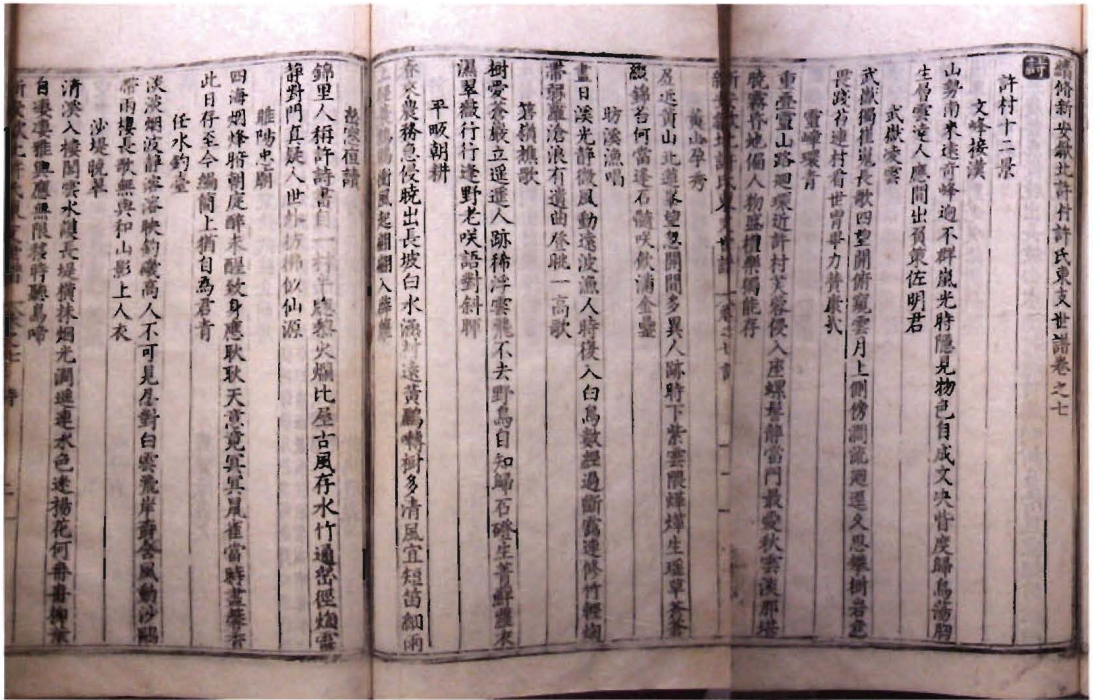 續脩新安歙北許村許氏東支世譜卷之七
詩
許村十二景
文峰接漢
山勢南來遠奇峰逈不群嵐光時隱見物色自成文決眥度歸鳥蕩胸
生層雲達人應間出預策佐明君
武嶽凌雲
武嶽獨崔嵬長歌四望開俯窺雲月上側傍澗龍迴選久思攀樹
畏踐苔連村看世冑畢力贊康哉
靈峰環青
重疊靈山路迴環近許村芙蓉侵入座螺髻靜當門最愛秋雲淡那堪
曉霧昏地偏人物盛禮樂獨能存
新安歙北許氏東支世譜 卷之七 詩
黃山孕秀
居近黃山北遊豋望忽開間多異人跡時下紫雲隈燁燁生瑤草蒼蒼
綴錦苔何當逢石髓咲飲滿金罍
昉溪漁唱
晝日溪光靜微風動遠波漁人時復入白鳥數經過斷靄連修竹輕烟
帶碧蘿滄浪有遺曲登眺一高歌
箬嶺樵歌
樹愛蒼巖立遥遥人跡稀浮雲飛不去野鳥日知歸石磴生菁鮮蘿衣
濕翠薇行行逢野老咲語對斜暉
平畈朝耕
春來農務急侵曉出長坡白水滿村遠黃鸝囀樹多清風宜短笛細雨
衝風起翩翩入薜蘿
錦里人稱許詩書自一村 火爛比屋古風存水竹通岔徑烟霞
靜對門真疑入世外彷彿似仙源
睢陽忠廟
四海烟烽暗朝庭醉未醒致身應耿耿天意竟冥冥鼠雀當時盡聲
此日存至今編簡上猶自爲君青
任水釣臺
淡淡烟波靜溶溶映釣磯高人不可見屋對白雲飛岸 風動沙鷗
帶雨棲長歌無與和山影上人衣
沙堤脫華
清溪入樓閣雲水護長堤橫抹烟光濶遥連水色迷楊花何冉冉
自凄凄雅興應無限移時聽鳥啼